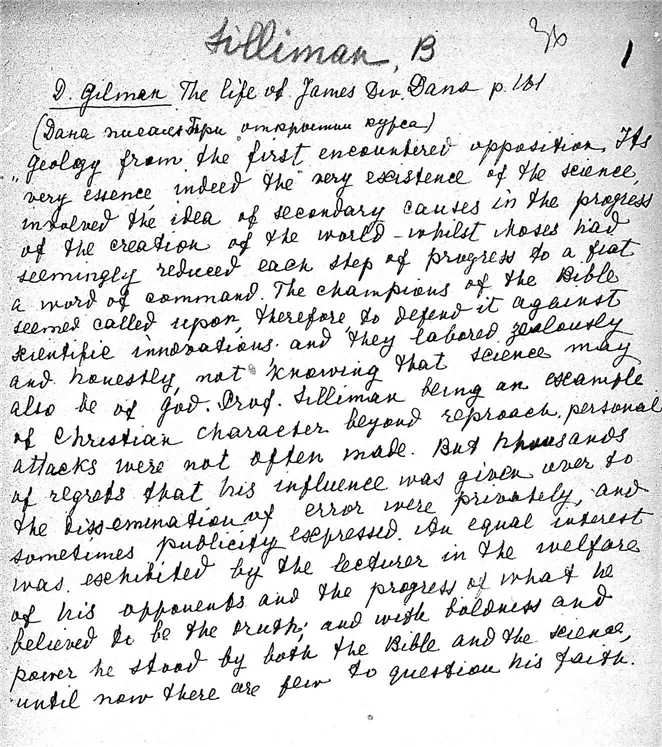 Silliman, B
36
1
D. Gilman The life of James Div. Dana p. 181
(Dana писал при открытии курса)
„Geology from the first encountered opposition. Its
very essence, indeed the very existence of the science,
involved the idea of secondary causes in the progress
of the creation of the world – whilst Moses had
seemingly reduced each step of progress to a fiat
a word of command. The champions of the Bible
seemed called upon, therefore to defend it against
scientific innovations. and they labored zealously
and honestly, not knowing that science may
also be of God. Prof. Silliman being an example
of Christian character beyond reproach, personal
attacks were not often made. But thousands
of regrets that his influence was given over to
the dissemination of error were privately, and
sometimes publicity expressed. An equal interest
was exhibited by the lecturer in the welfare
of his opponents and the progress of what he
believed to be the truth; and with boldness and
power he stood by both the Bible and the science,
until now there are few to question his faith.